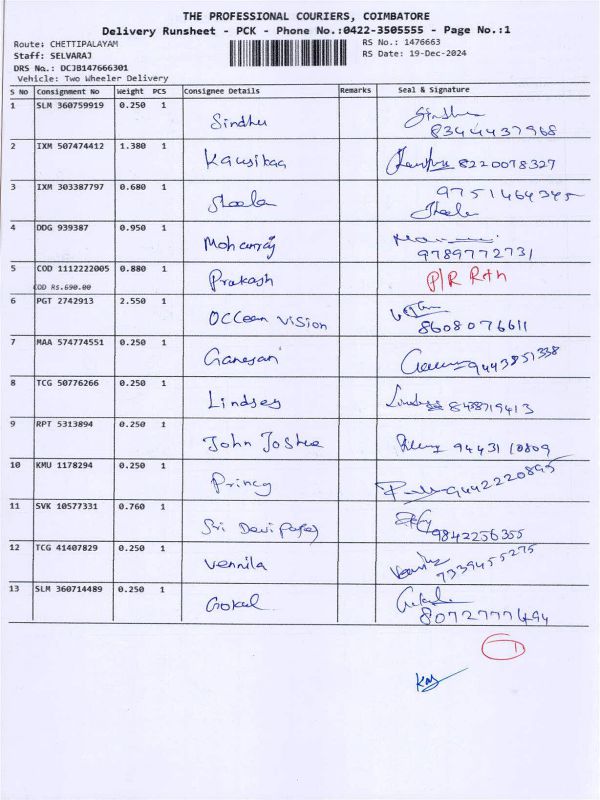 THE PROFESSIONAL COURIERS, COIMBATORE
Delivery Runsheet - PCK - Phone No.:0422-3505555 - Page No.:1
Route: CHETTIPALAYAM RS No.: 1476663
Staff: SELVARAJ RS Date: 19-Dec-2024
DRS No.: DCJB147666301
Vehicle: Two Wheeler Delivery
S No Consignment No Weight PCS Consignee Details Remarks Seal & Signature
1 SLM 360759919 0.250 1 Sindhu Sindhu
8344437968
2 IXM 507474412 1.380 1 Kausikaa 8220078327
3 IXM 303387797 0.680 1 Sheela 9751464345
Sheela
4 DDG 939387 0.950 1 Mohanraj
9789772731
5 COD 1112222005 0.880 1 Prakash P/R Rtn
COD RS.690.00
6 PGT 2742913 2.550 1 OCCean Vision
8608076611
7 MAA 574774551 0.250 1 Ganesan 9443851338
8 TCG 50776266 0.250 1 Lindsey Lindsey 8438719413
9 RPT 5313894 0.250 1 John Joshua 9443110809
10 KMU 1178294 0.250 1 Princy 9442220895
11 SVK 10577331 0.760 1 Sri Devi
9842256355
12 TCG 41407829 0.250 1 Vennila
7339455275
13 SLM 360714489 0.250 1 Gokul Gokul
8072777494